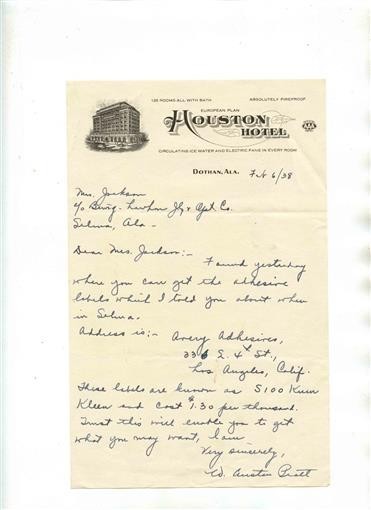 125 ROOMS-ALL WITH BATH
ABSOLUTELY FIREPROOF
EUROPEAN PLAN
HOUSTON
HOTEL
AAA
CIRCULATING ICE WATER AND ELECTRIC FANS IN EVERY ROOM
DOTHAN, ALA. Feb 6/38
Mrs. Jackson
c/o Co.
Selma, Ala -
Dear Mrs. Jackson:-
Found yesterday
where you can get the adhesive
labels which I told you about when
in Selma.
Address is:- Avery Adhesives,
336 E. 4th St.,
Los Angeles, Calif.
These labels are known as S100 Kum
Kleen and cost $1.30 per thousand.
Trust this will enable you to get
what you may want, I am
Very sincerely,
W. Austin Pratt